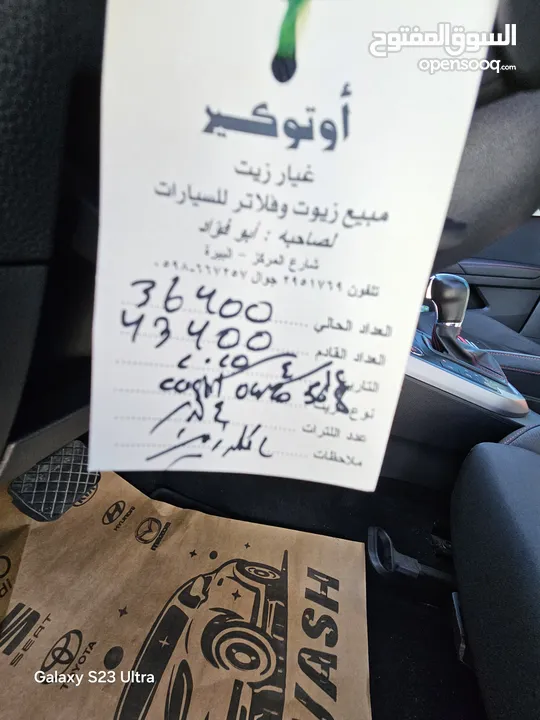 السوق المفتوح
opensooq.com
أوتوكير
غيار زيت
مبيع زيوت وفلاتر للسيارات
لصاحبه : أبو فؤاد
شارع المركز - البيرة
تلفون ٢٩٥١٧٦٩ جوال ٠٥٩٨-٦٦٧٢٥٧
العداد الحالي 36400
العداد القادم 43400
التاريخ
نوع الزيت
عدد اللترات
ملاحظات
HYUNDAI
MAZDA
SEAT
TOYOTA
WASH
Galaxy S23 Ultra